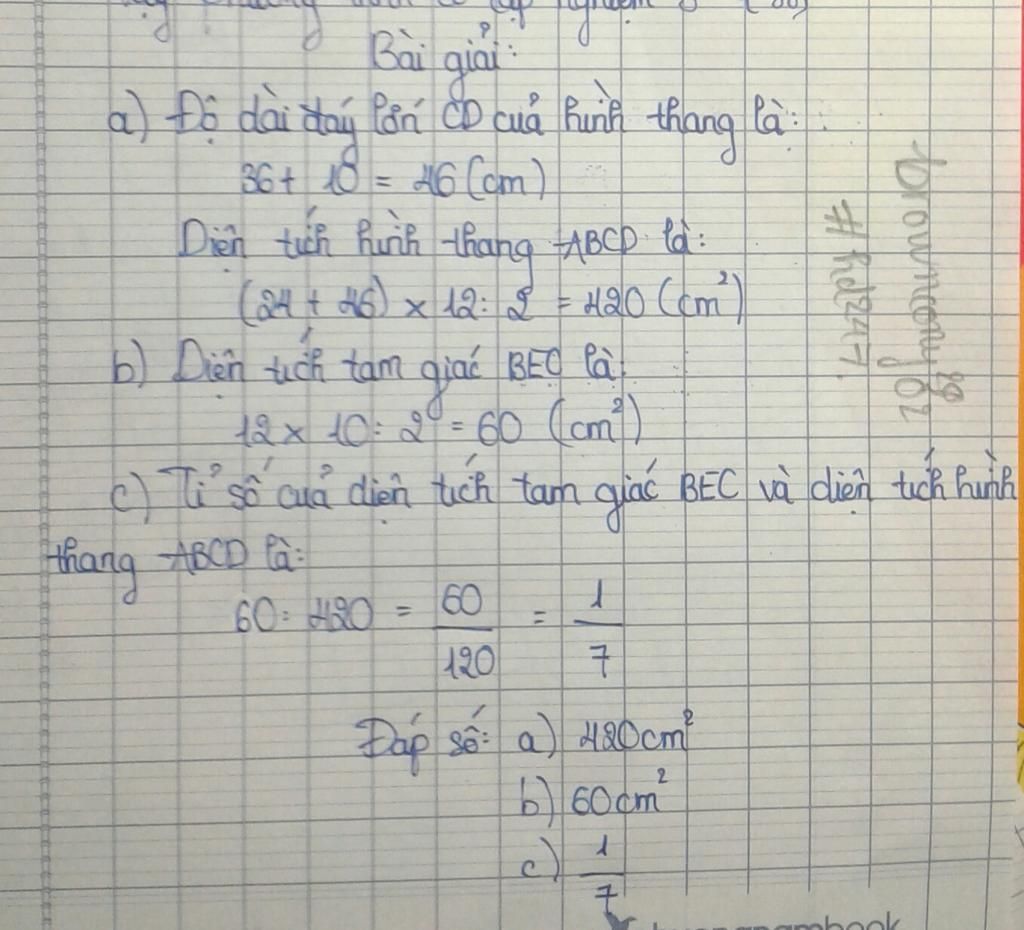 Bài giải:
a) Độ dài đáy lớn CD của hình thang là:
36 + 10 = 46 (cm)
Diện tích hình thang ABCD là:
(24 + 46) x 12 : 2 = 420 (cm²)
b) Diện tích tam giác BEC là:
12 x 10 : 2 = 60 (cm²)
c) Tỉ số của diện tích tam giác BEC và diện tích hình
thang ABCD là:
60 : 420 = 60/120 = 1/7
Đáp số: a) 420cm²
b) 60cm²
c) 1/7
#hd247